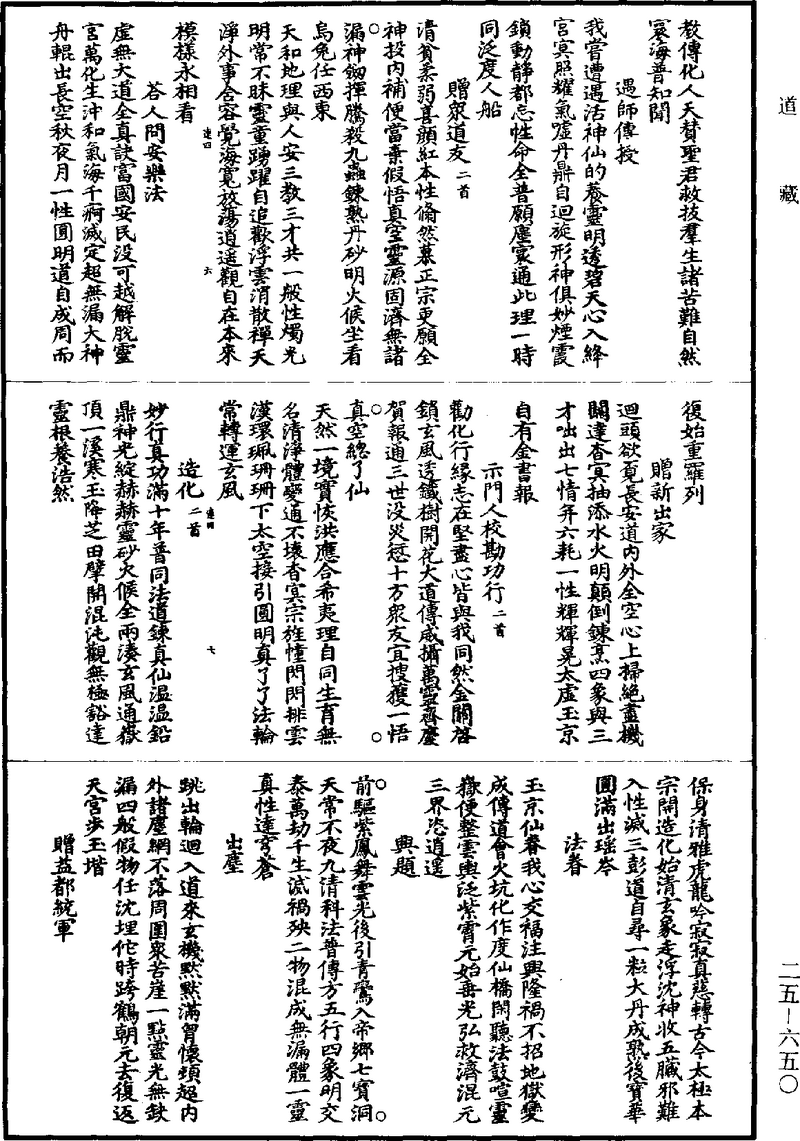 道藏
教傳化人天賛聖君救拔羣生諸苦難自然
寰海普知聞
遇師傳授
我嘗遭遇活神仙的養靈明透碧天心入絳
宮冥照耀氣噓丹鼎自迴旋形神俱妙煙霞
鎖動靜都忘性命全普願塵寰通此理一時
同泛度人船
贈衆道友二首
清貧柔弱喜顔紅本性翛然慕正宗更願全
神投内補便當棄假悟真空靈源固濟無諸
漏神劔揮騰殺九蟲鍊熟丹砂明火候坐看
烏兔任西東
天和地理與人安三教三才共一般性燭光
明常不昧靈童踴躍自追歡浮雲消散禪天
淨外事含容覺海寬放蕩逍遥觀自在本來
模樣永相看
荅人問安樂法
虚無大道全真訣富國安民没可越解脫靈
宮萬化生沖和氣海千痾滅定超無漏大神
舟輥出長空秋夜月一性圓明道自成周而
復始重羅列
贈新出家
迴頭欲覓長安道内外全空心上掃絶盡機
關達杳冥抽添水火明顛倒鍊烹四象與三
才咄出七情弃六耗一性輝輝晃太虚玉京
自有金書報
示門人校勘功行二首
勸化行縁志在堅盡心皆與我同然金關啓
鎖玄風透鐵樹開花大道傳咸攝萬靈齊慶
賀報通三世没災愆十方衆友宜搜獲一悟
真空緫了仙
天然一境實恢洪應合希夷理自同生育無
名清淨體變通不壊杳冥宗旌幢閃閃排雲
漢環珮珊珊下太空接引圓明真了了法輪
常轉運玄風
造化二首
妙行真功滿十年普同法道鍊真仙温温鉛
鼎神光綻赫赫靈砂火候全兩湊玄風通嶽
頂一溪寒玉降芝田擘開混沌觀無極豁達
靈根養浩然
保身清雅虎龍吟寂寂真慈轉古今太極本
宗開造化始清玄象走浮沈神收五臟邪難
入性滅三彭道自尋一粒大丹成熟後寶華
圓滿出瑶岑
法眷
玉京仙眷我心交福注興隆禍不招地獄變
成傳道會火坑化作度仙橋閑聽法鼓喧靈
嶽便整雲輿泛紫霄元始垂光弘救濟混元
三界恣逍遥
興題
前驅紫鳳舞雲光後引青鸞入帝鄉七寶洞
天常不夜九清科法普傳方五行四象明交
泰萬劫千生滅禍殃二物混成無漏體一靈
真性達穹蒼
出塵
跳出輪迴入道來玄機默默滿胷懐頊超内
外諸塵網不落周圍衆苦崖一點靈光無缺
漏四般假物任沈埋佗時跨鶴朝元去復返
天宮步玉堦
贈益都統軍
二五—六五〇